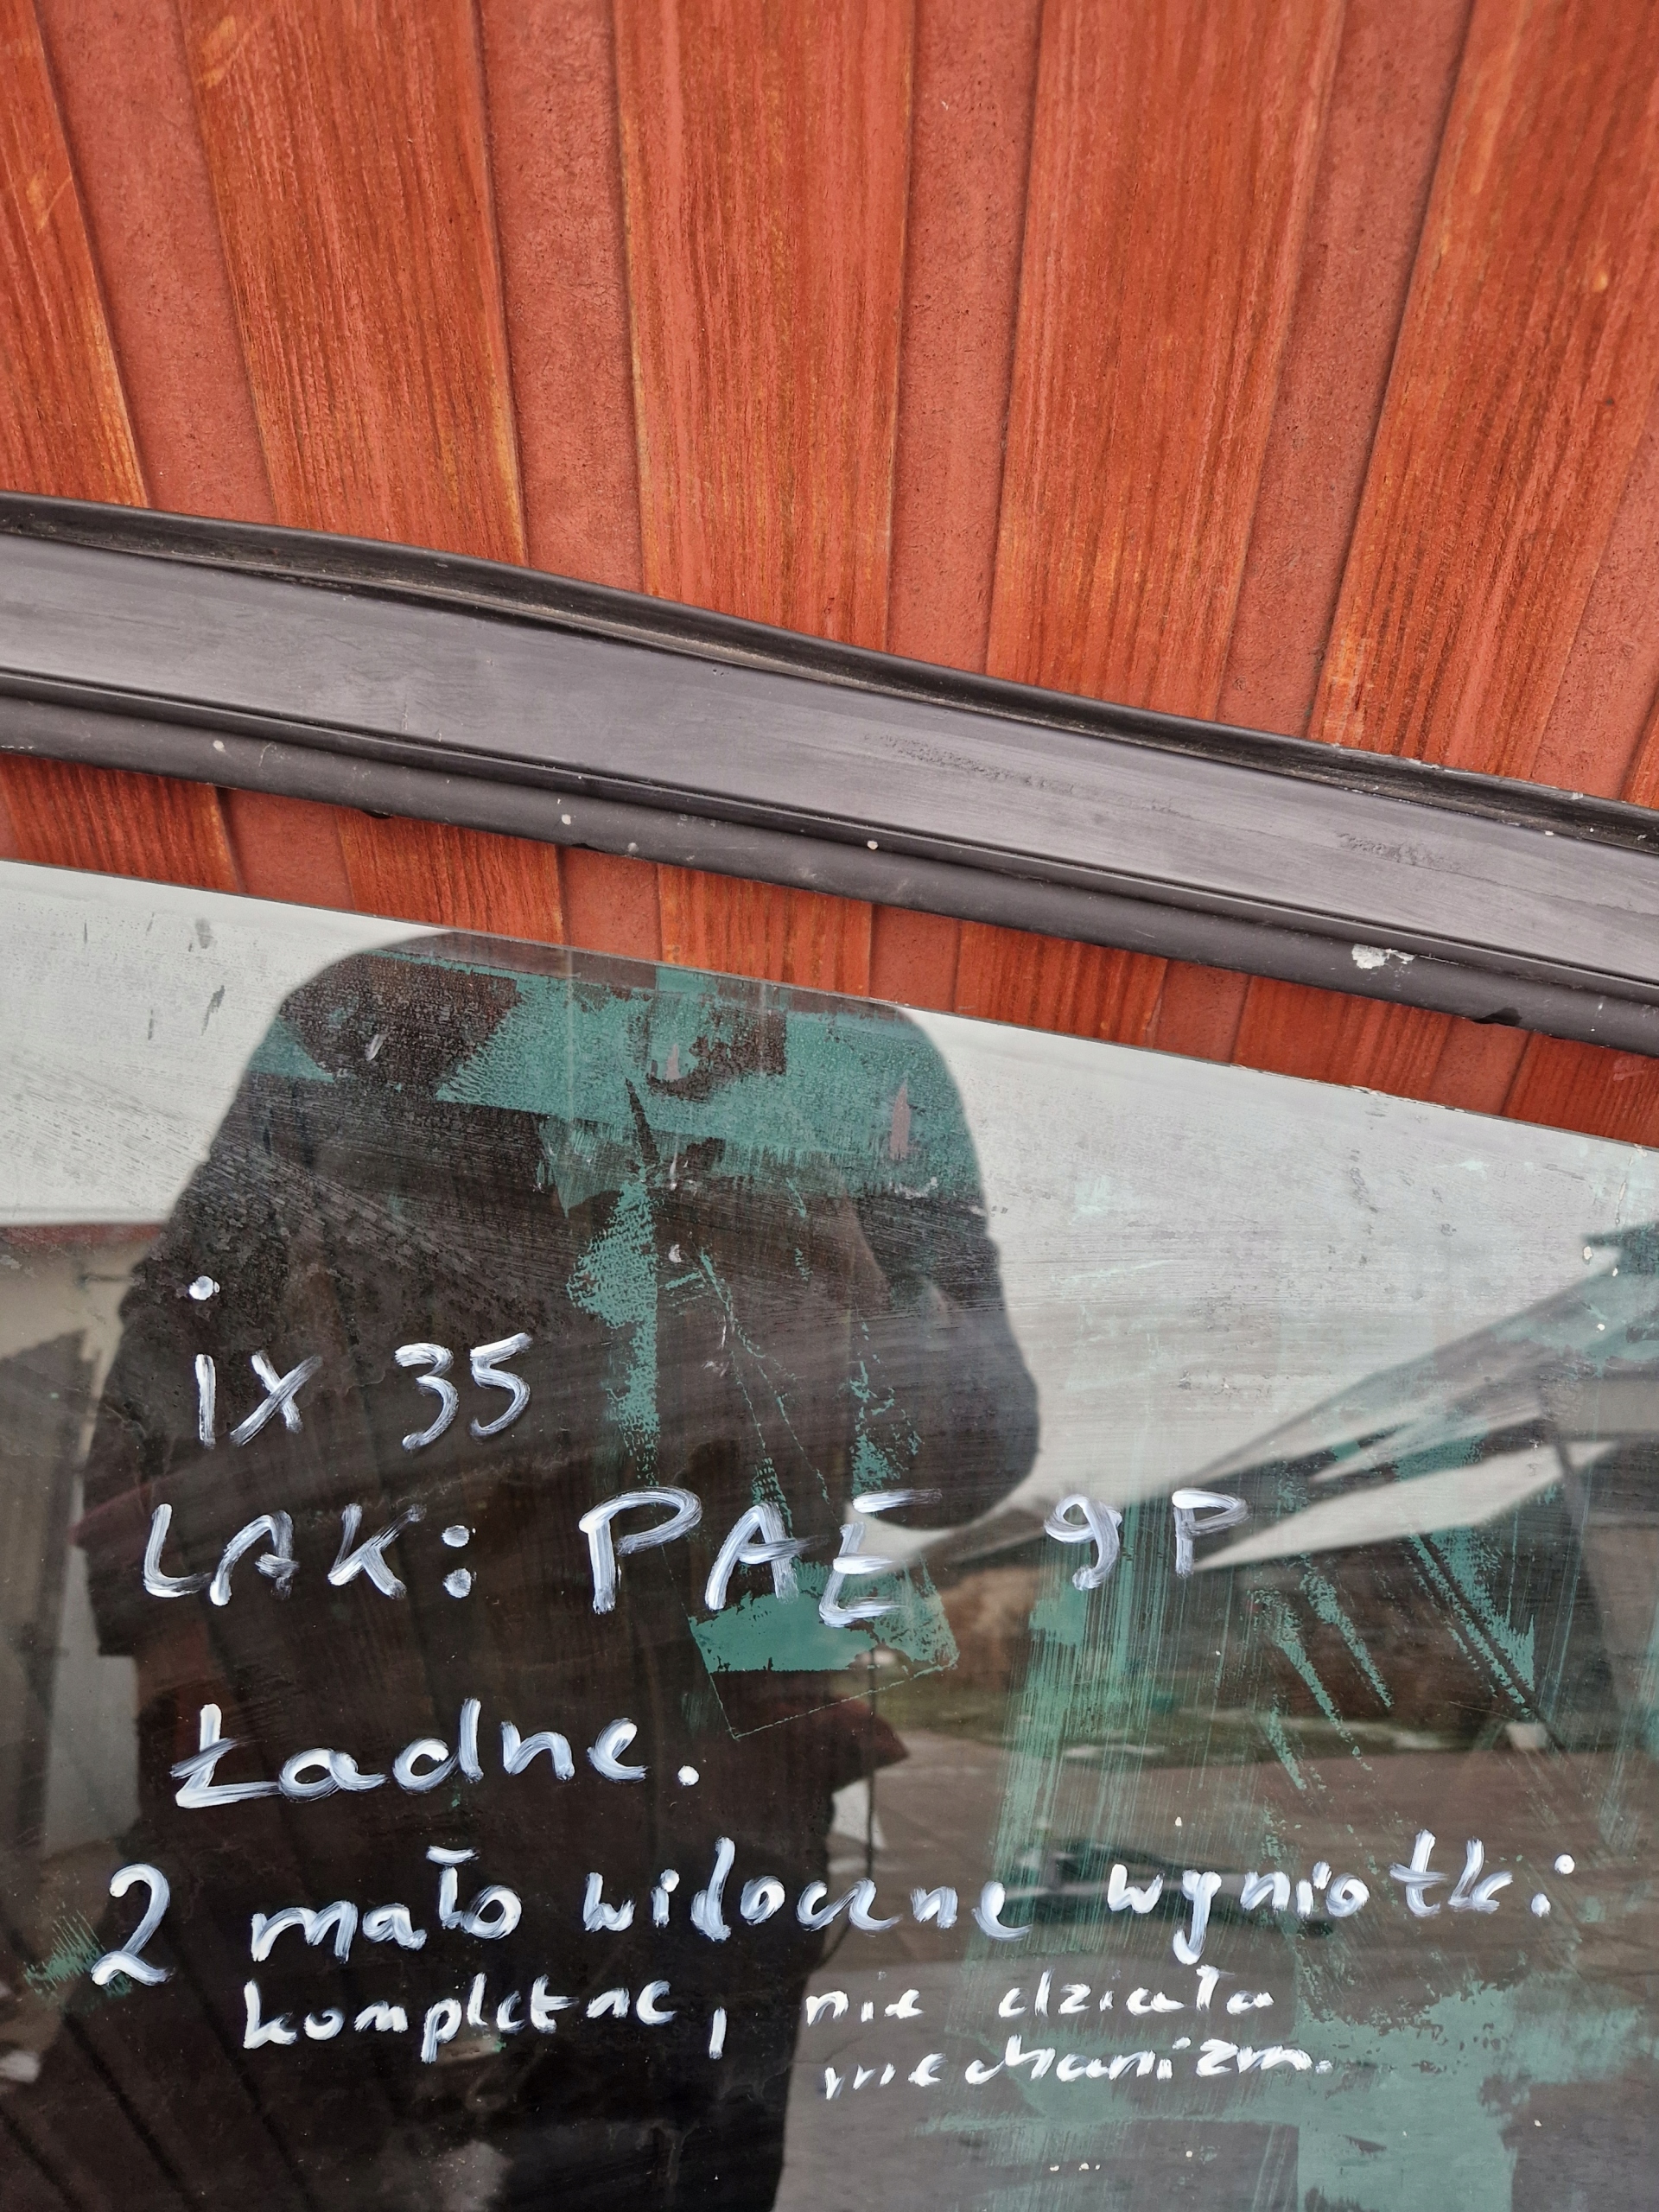 iX 35
LAK: PAE 9P
Ładne.
2 mało widoczne wgniotki
kompletne, nie działa
mechanizm.